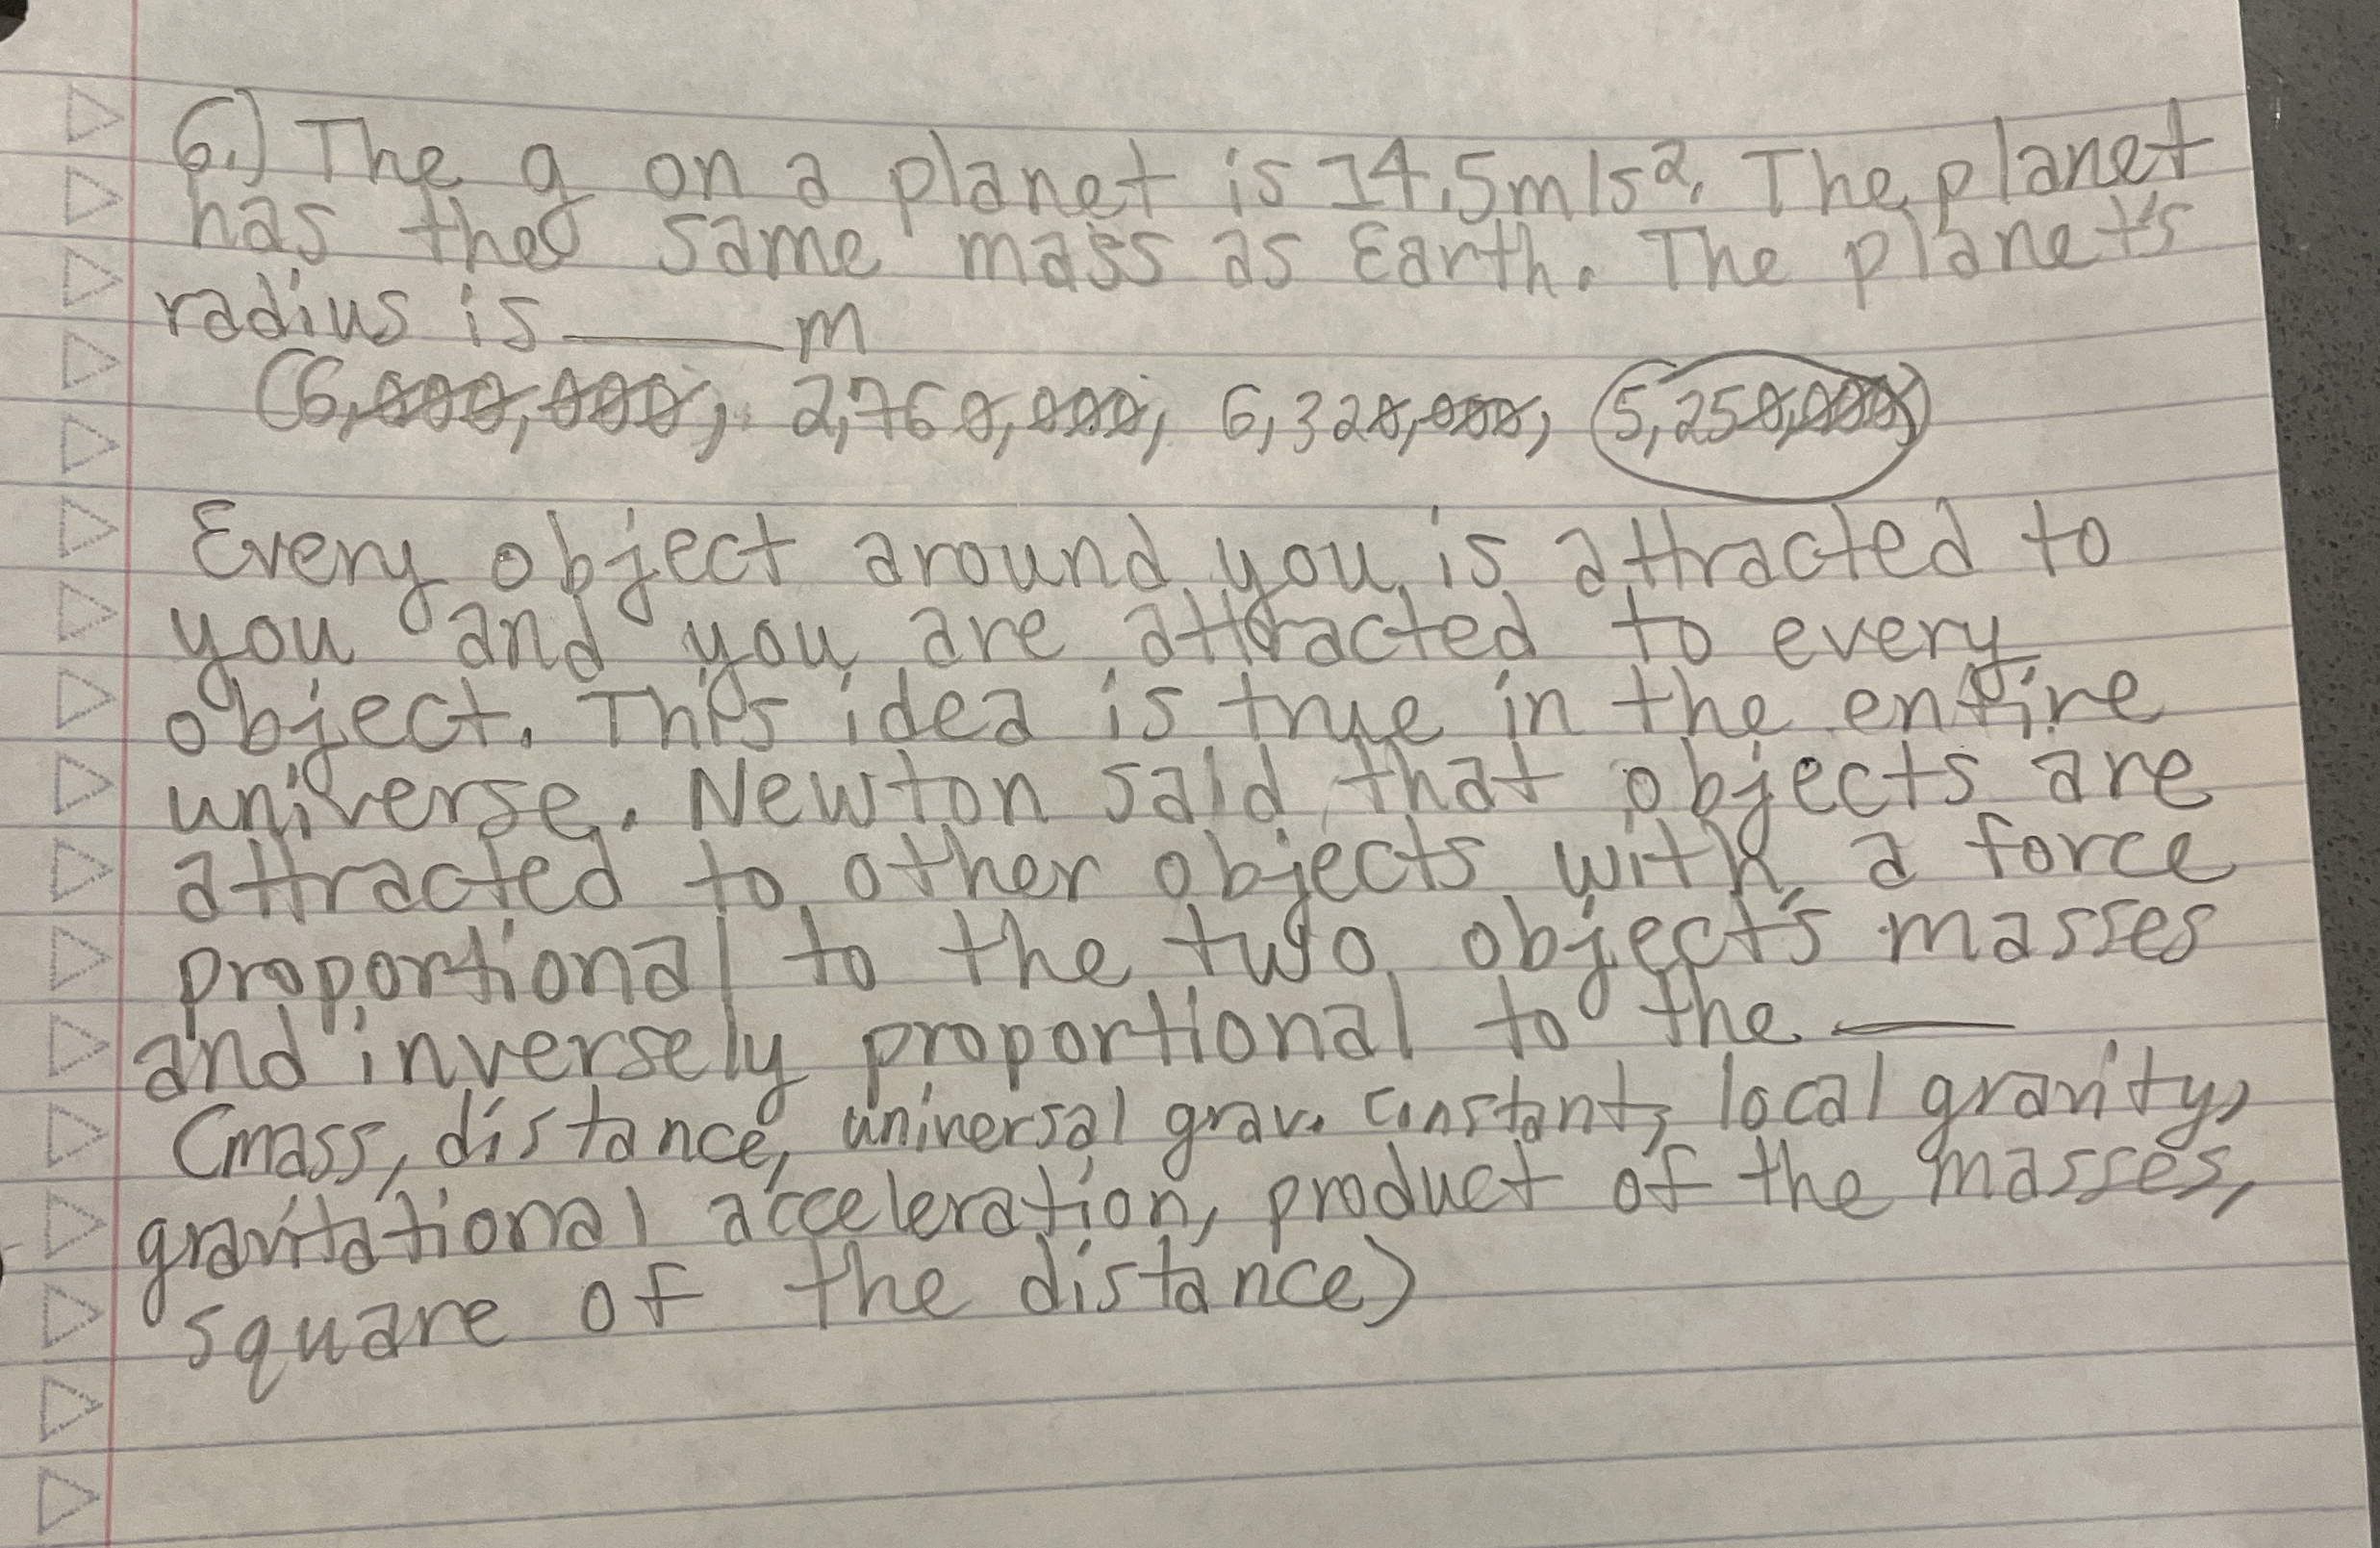 6.) The g on a planet is 14.5m/s². The planet
has the same mass as Earth. The planet's
radius is ____ m
(6,000,000, 2,760,000, 6,320,000, 5,250,000)
Every object around you is attracted to
you and you are attracted to every
object. This idea is true in the entire
universe. Newton said that objects are
attracted to other objects with a force
proportional to the two object's masses
and inversely proportional to the ____
(mass, distance, universal grav. constant, local gravity,
gravitational acceleration, product of the masses,
square of the distance)